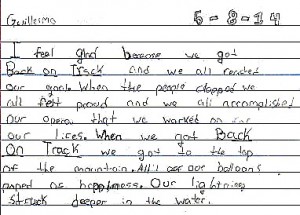 Guillermo 5-8-14
I feel glad because we got
Back on Track and we all reached
our goals. When the people clapped we
all felt proud and we all accomplished
our opera that we worked on for
our lifes. When we got Back
On Track we got to the top
of the mountain. All of our balloons
poped as happiness. Our lightning
struck deeper in the water.